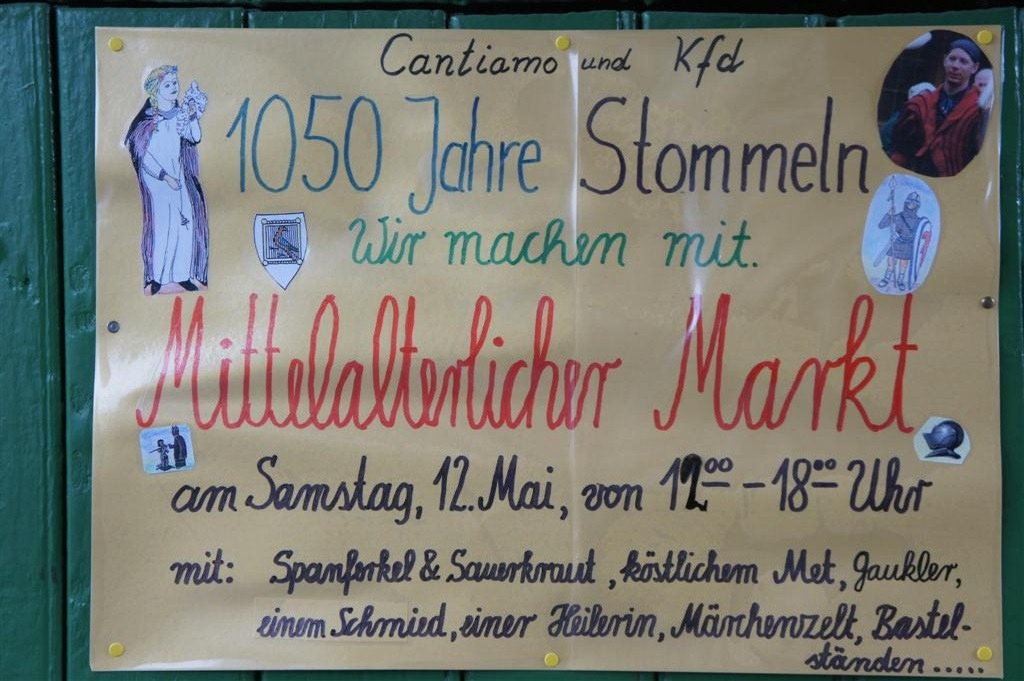 Cantiamo und Kfd
1050 Jahre Stommeln
Wir machen mit.
Mittelalterlicher Markt
am Samstag, 12. Mai, von 12⁰⁰ – 18⁰⁰ Uhr
mit: Spanferkel & Sauerkraut, köstlichem Met, Gaukler,
einem Schmied, einer Heilerin, Märchenzelt, Bastel-
ständen.....